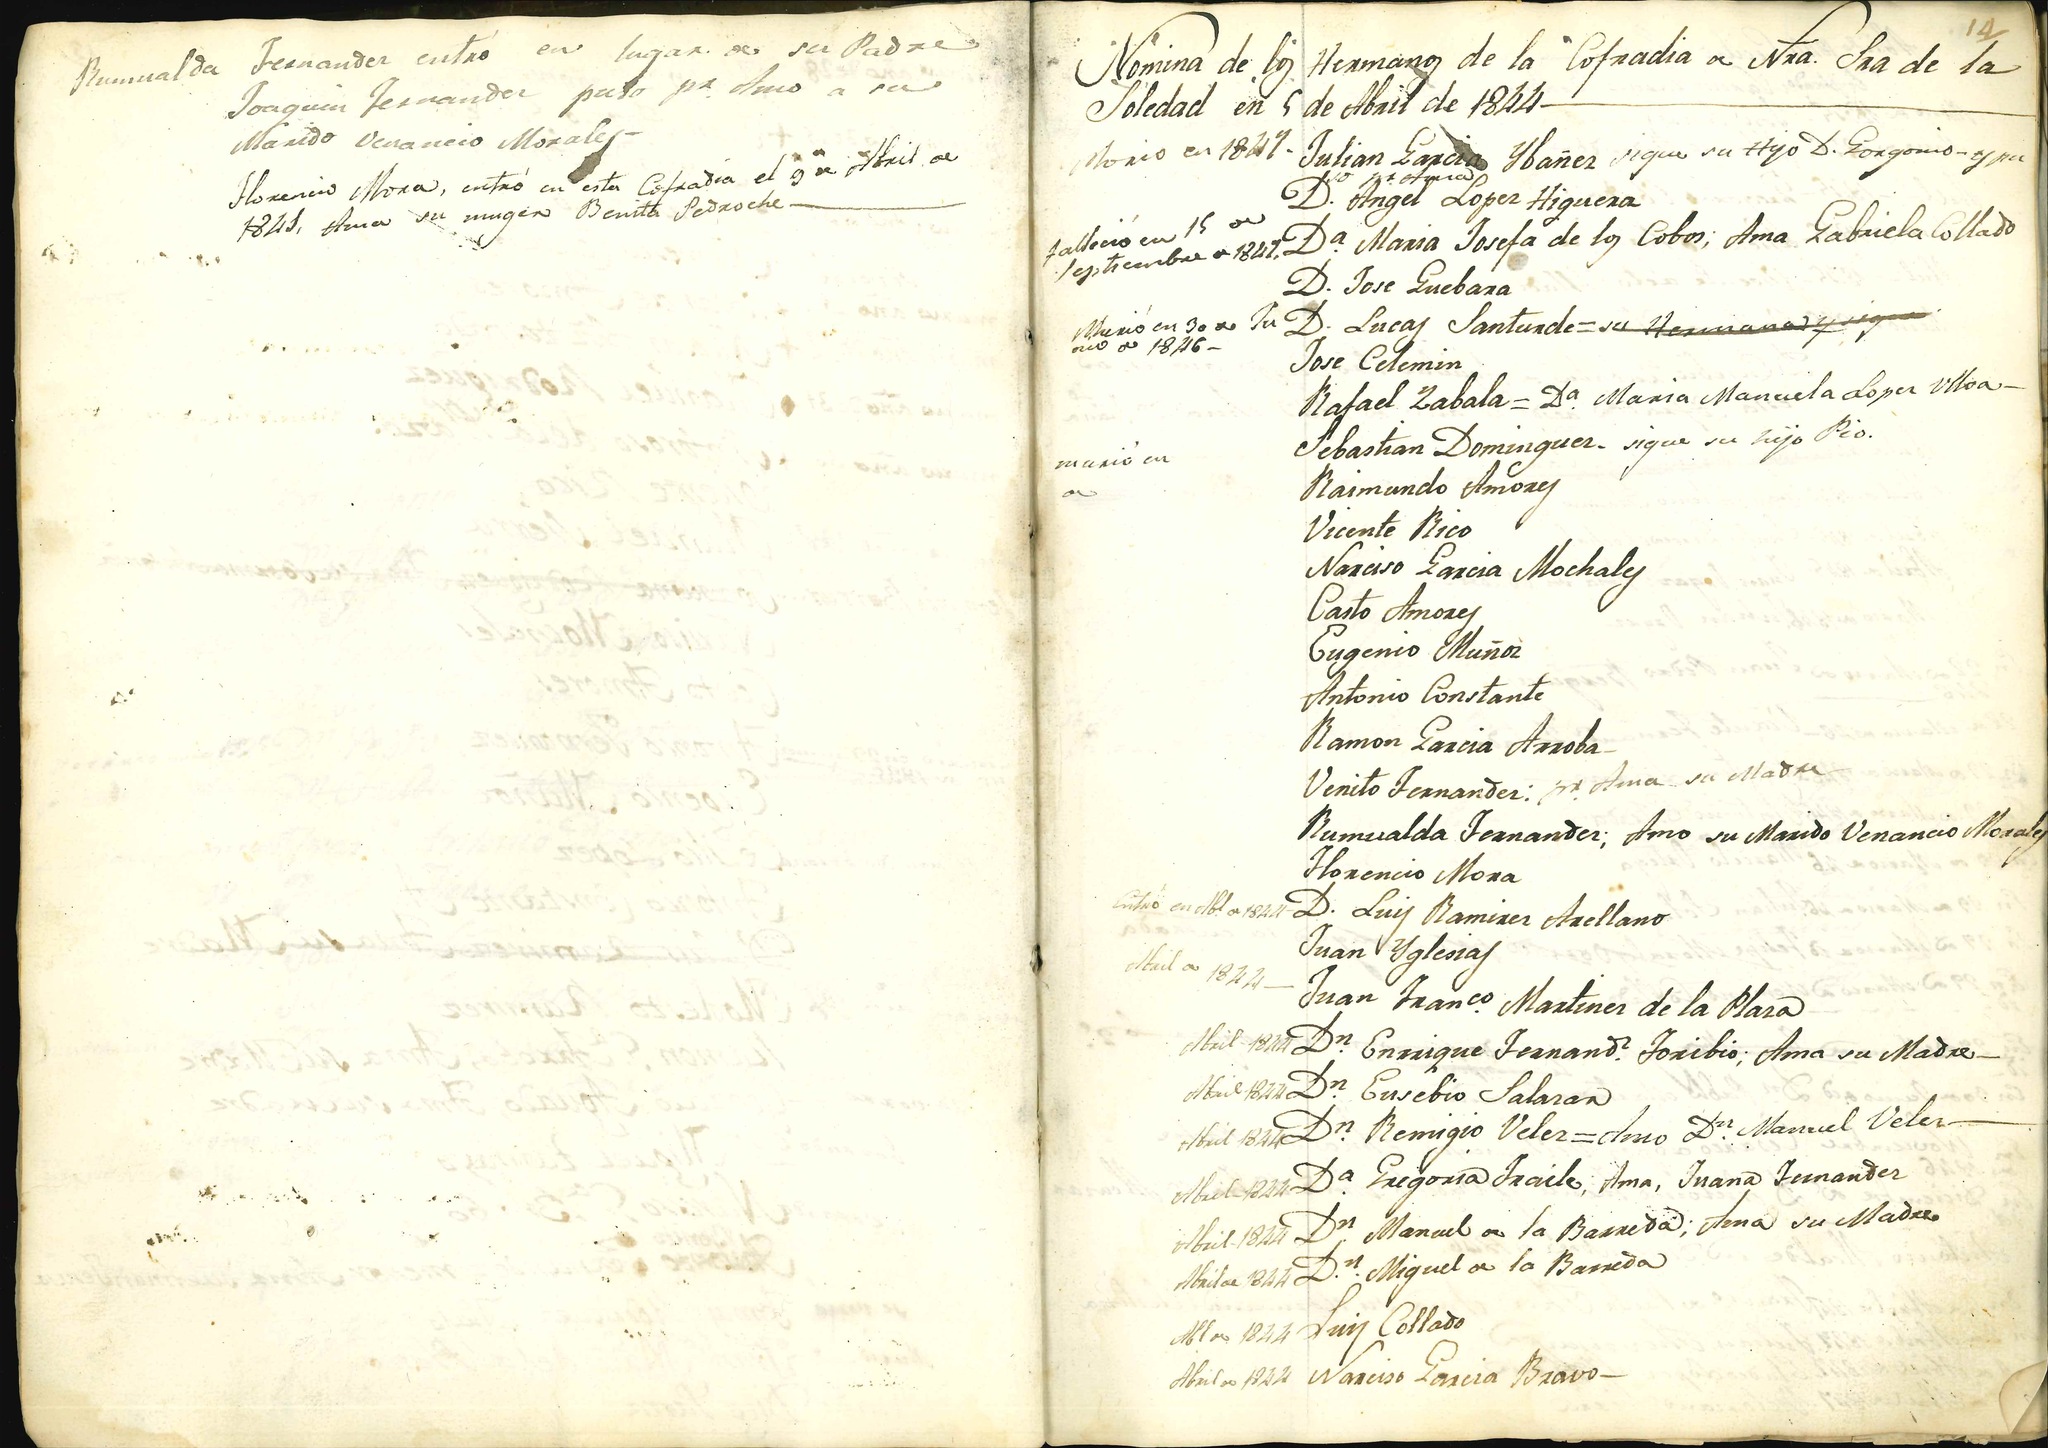 Rumualda Fernandez entró en lugar de su Padre
Joaquin Fernandez puso pr. Amo a su
Marido Venancio Morales
Florencio Mora, entró en esta Cofradia el 9 de Abril de
1841, Ama su muger Benita Pedroche
14
Nómina de los Hermanos de la Cofradia de Nra. Sra de la
Soledad en 5 de Abril de 1844
Morio en 1847. Julian Garcia Ybañez sigue su Hijo D. Gorgonio - y pu
so pr. Ama
D. Angel Lopez Higuera
Falleció en 15 de
Septiembre de 1847. Da. Maria Josefa de los Cobos; Ama Gabriela Collado
D. Jose Guebara
Murió en 30 de Ju
nio de 1846 - D. Lucas Santurde = su Hermana y sigue
Jose Celemin
Rafael Zabala = Da. Maria Manuela Lopez Ulloa
murió en
de
Sebastian Dominguez - sigue su hijo Pio.
Raimundo Amores
Vicente Rico
Narciso Garcia Mochales
Casto Amores
Eugenio Muñoz
Antonio Constante
Ramon Garcia Arroba
Venito Fernandez: pr. Ama su Madre
Rumualda Fernandez; Amo su Marido Venancio Morales
Florencio Mora
Entró en Abl de 1844 D. Luis Ramirez Arellano
Juan Yglesias
Abril de 1844 Juan Franco. Martinez de la Plaza
Abril 1844 Dn. Enrrique Fernandz. Toribio; Ama su Madre
Abril 1844 Dn. Eusebio Salazar
Abril 1844 Dn. Remigio Velez = Amo Dn. Manuel Velez
Abril 1844 Da. Gregoria Fraile, Ama, Juana Fernandez
Abril 1844 Dn. Manuel de la Barreda; Ama su Madre
Abril de 1844 Dn. Miguel de la Barreda
Abl de 1844 Luis Collado
Abril de 1844 Narciso Garcia Bravo